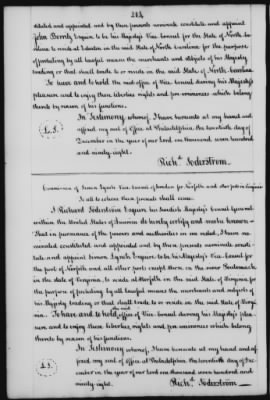 214
stituted and appointed and by these presents nominate constitute and appoint
John Bernly Esquire to be his Majesty's Vice Consul for the State of North Ca-
rolina to reside at Edenton in the said State of North Carolina for the purpose
of protecting by all lawful means the merchants and subjects of his Majesty
trading or that shall trade to or reside in the said State of North Carolina
To have and to hold the said office of Vice Consul during his Majesty's
pleasure and to enjoy those liberties rights and pre eminences which belong
thereto by reason of his functions.
In Testimony whereof, I have hereunto set my hand and
affixed my seal of Office at Philadelphia the twentieth day of
December in the year of our lord one thousand seven hundred
and ninety-eight.
L.S.
Rich^d. Söderström.
of Simon Lynch Vice Consul of Sweden for Norfolk and other ports in Virginia
To all to whom these presents shall come.
I Richard Söderström Esquire his Swedish Majesty's Consul General
within the United States of America do hereby certify and make known —
That in pursuance of the powers and authorities in me vested, I have no-
minated constituted and appointed and by these presents nominate consti-
tute and appoint Simon Lynch Esquire to be his Majesty's Vice Consul for
the port of Norfolk and all other ports except those on the river Potowmack
in the state of Virginia, to reside at Norfolk in the said State of Virginia for
the purpose of protecting by all lawful means the merchants and subjects of
his Majesty trading or that shall trade to or reside in the said State of Virgi-
nia. To have and to hold, office of Vice Consul during his Majesty's plea-
sure, and to enjoy those liberties rights and pre eminences which belong
thereto by reason of his functions.
In Testimony whereof, I have hereunto set my hand and af-
fixed my seal of Office at Philadelphia the twentieth day of De-
cember in the year of our lord one thousand seven hundred and
ninety eight.
L.S.
Rich^d. Söderström —